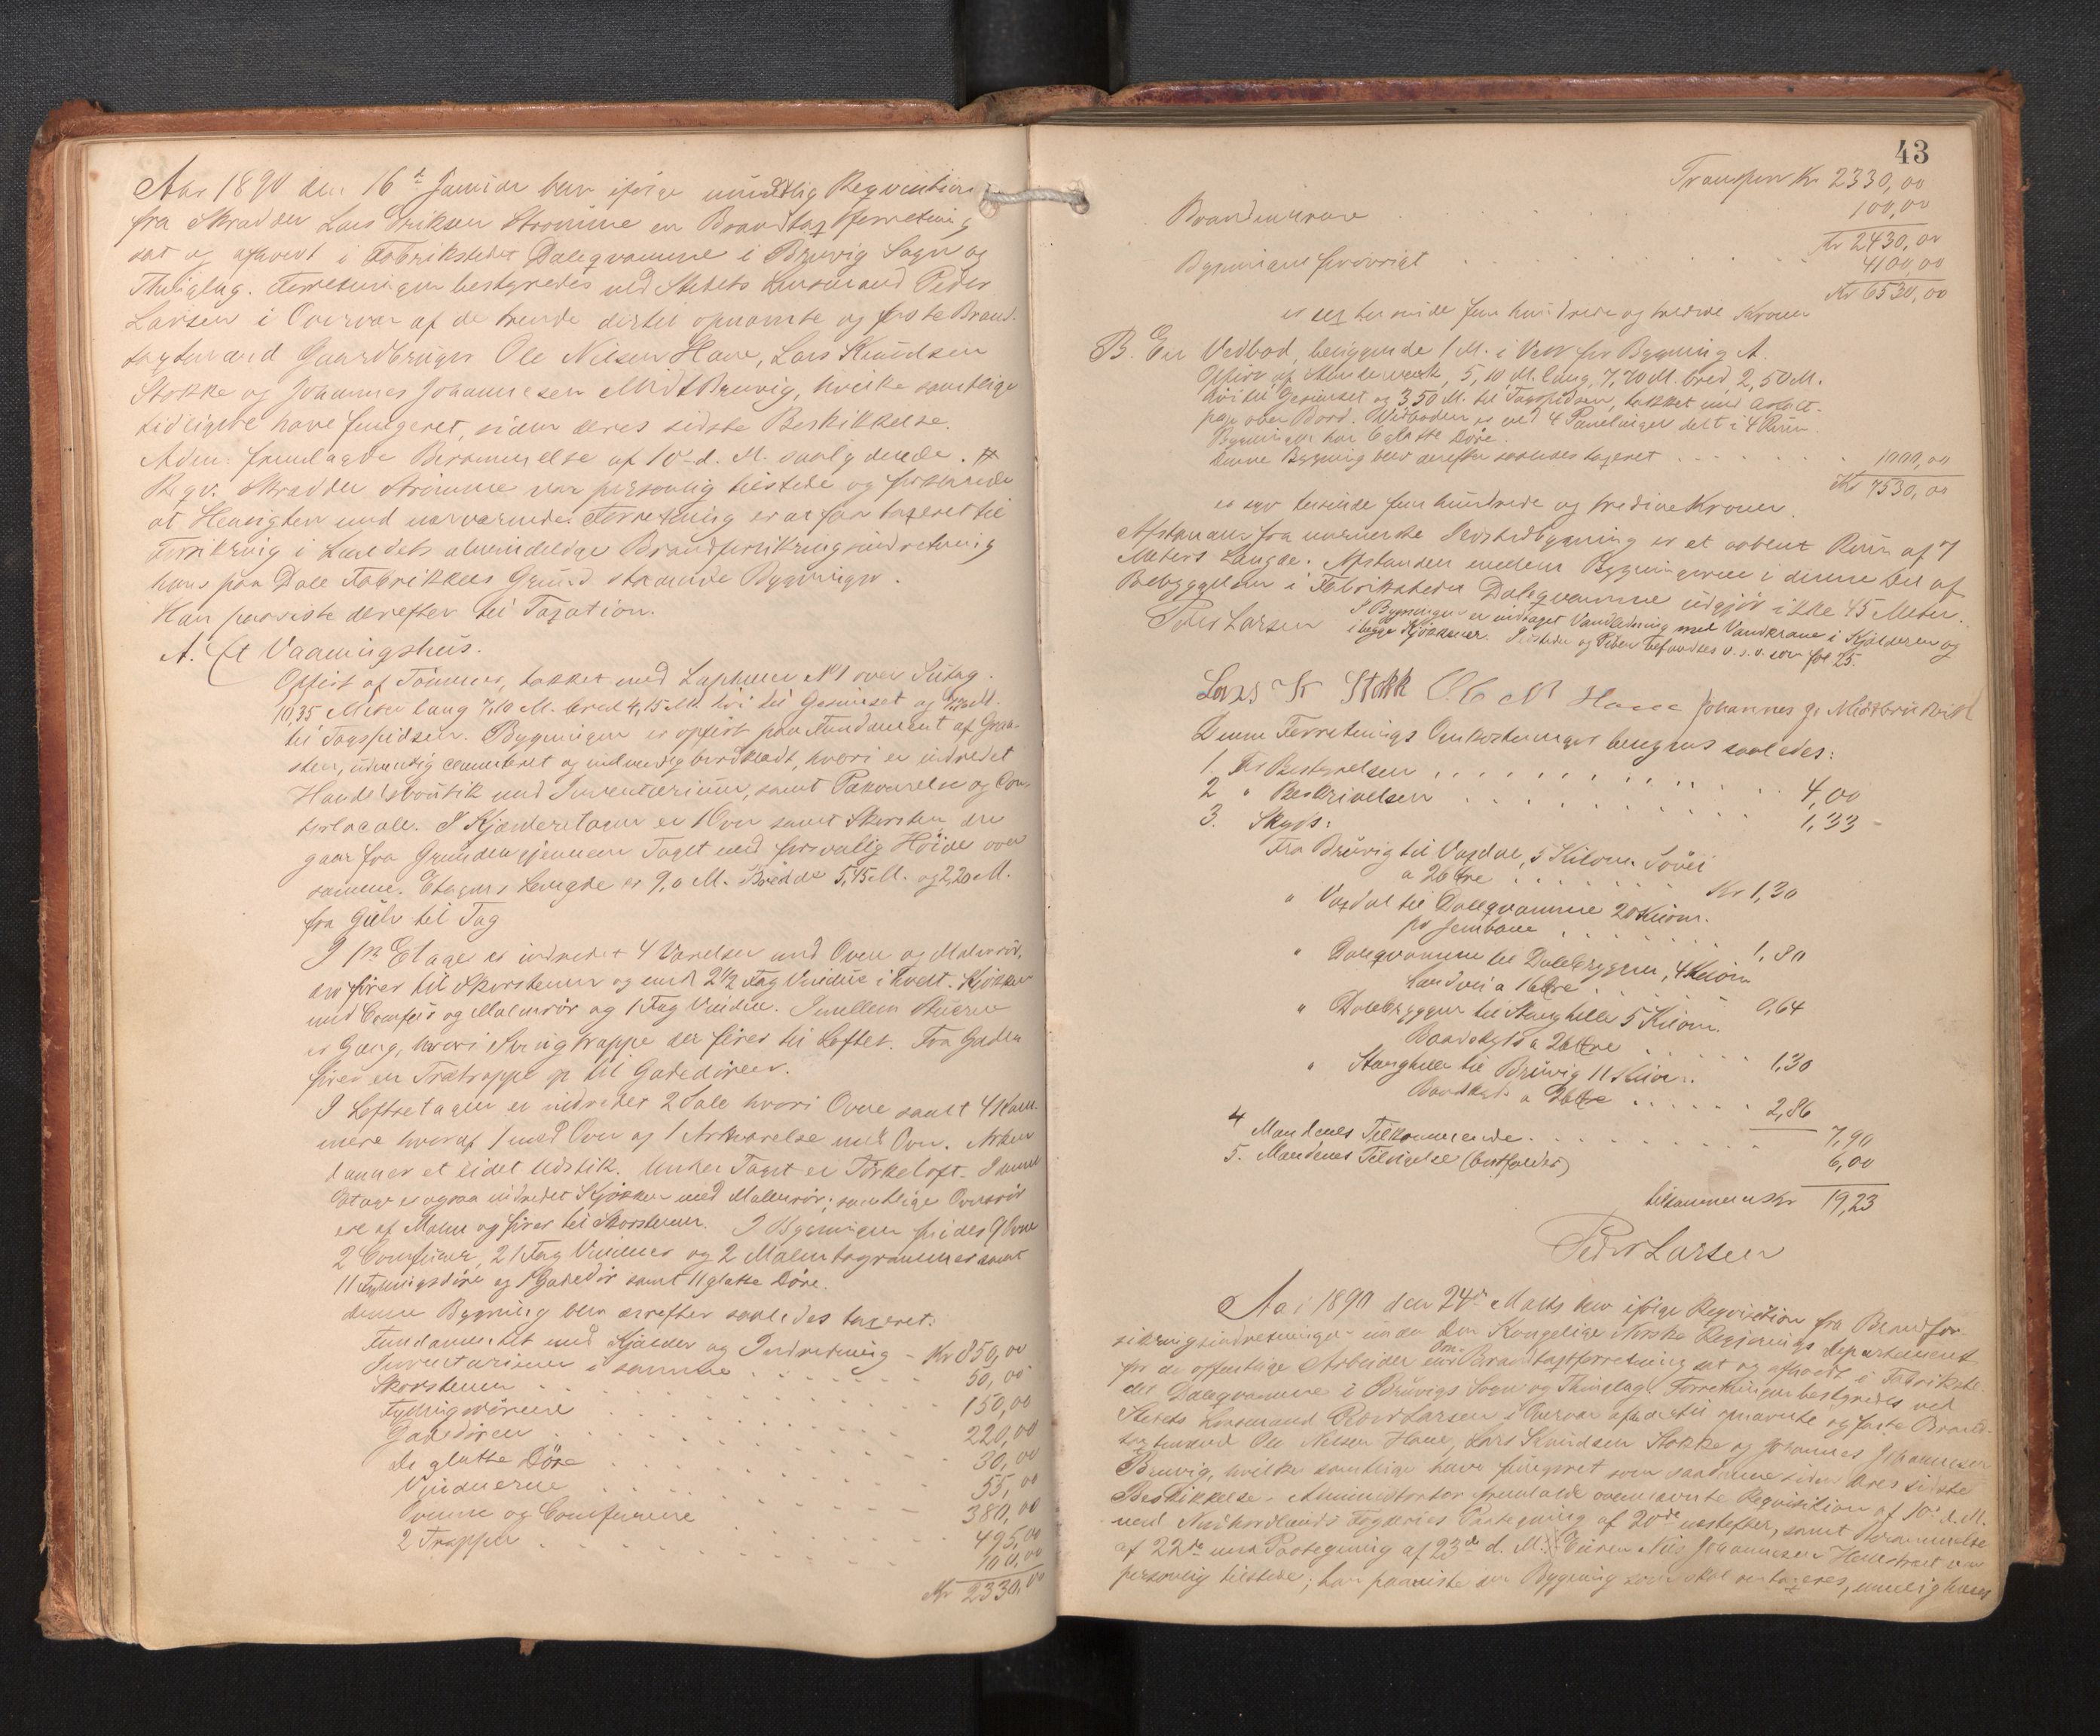 Aar 1890 den 16de Januar blev ifølge mundtlig Reqvisition
fra Skrædder Lars Eriksen Strømme en Brandtaxtforretning
sat og afholdt i Fabrikstedet Daleqvamme i Bruvig Sogn og
Thinglag. Forretningen bestyredes ved Stedets Lensmand Peder
Larsen i Overvær af de trende dertil opnævnte og faste Brand-
taxtmænd Gaardbruger Ole Nilsen Hane, Lars Knudsen
Stokke og Johannes Johannesen MidtBruvig, hvilke samtlige
tidligere have fungeret siden deres sidste Beskikkelse.
Adm. fremlagde Berammelse af 10de d. M. saalydende. #
Reqv. Skrædder Strømme var personlig tilstede og forklarede
at Hensigten med nærværende Forretning er at faa taxeret til
Forsikring i Landets almindelige Brandforsikringsindretning
hans paa Dale Fabrikkes Grund staaende Bygninger.
Han paaviste derefter til Taxation.
A. Et Vaaningshus.
Opført af Tømmer, tækket med Laphuer N1 over Sutag.
10,35 Meter lang 7,10 M. bred 4,15 M. høi til Gesimset og
til Tagspidsen. Bygningen er opført paa Fundament af Graa-
sten, udvendig cementeret og indvendig bordklædt, hvori er indredet
Handelsboutik med Inventarium, samt Pakværelse og Con-
torlocale. I Kjælderetagen er 1 Ovn samt Skorsten, der
gaar fra Grunden gjennem Taget med forsvarlig Høide over
samme. Etagens Længde er 9,0 M. Bredde 5,45 M. og 2,20 M.
fra Gulv til Tag
I 1ste Etage er indredet 4 Værelser med Ovne og Malmrør,
der fører til Skorstenen og med 2 1/2 Fag Vindue i hvert. Kjøkken
med Comfur og Malmrør og 1 Fag Vindue. Imellem Stuerne
er Gang, hvori Svingtrappe der fører til Loftet. Fra Gaden
fører en Trætrappe op til Gadedøren.
I Loftsetagen er indredet 2 Sale hvori Ovne samt 4 Kam-
mere hvoraf 1 med Ovn og 1 Arkværelse med Ovn. Arken
danner et lidet Udstik. Under Taget er Tørkeloft. I denne
Etage er ogsaa indredet Kjøkken med Malmrør; samtlige Ovnsrør
ere af Malm og fører til Skorstenen. I Bygningen findes 9 Ovne
2 Comfurer, 21 Fag Vinduer og 2 Malmtagrammer samt
11 Fyldingsdøre og 1 Gadedør samt 11 glatte Døre.
Denne Bygning blev derefter saaledes taxeret:
Fundamentet med Kjælder og Indretning - Kr 850,00
Inventarium i samme . . . 50,00
Skorstenen . . . 150,00
Fyldingsdørene . . . 220,00
Gadedøren . . . 30,00
De glatte Døre . . . 55,00
Vinduerne . . . 380,00
Ovnene og Comfurene . . . 495,00
2 Trapper . . . 100,00
Kr 2330,00
43
Transport Kr 2330,00
Brandmurene . . . 100,00
Kr 2430,00
Bygningen forøvrigt . . . 4100,00
Kr 6530,00
er sex tusinde fem hundrede og tredive Kroner
B. En Vedbod, beliggende 1 M. i Vest for Bygning A.
Opført af Stenderværk, 5,10 M. lang, 7,70 M. bred, 2,50 M.
høi til Gesimset og 3,50 M. til Tagspidsen, tækket med Asfalt-
pap over Bord. Udboden er ved 4 Panelinger delt i 4 Rum.
Bygningen har 6 glatte Døre.
Denne Bygning blev derefter saaledes taxeret . . . 1000,00
Kr 7530,00
er syv tusinde fem hundrede og tredive Kroner.
Afstanden fra nærmeste Bygning er et aabent Rum af 7
Meters Længde. Afstanden mellem Bygningerne i denne Del af
Bebyggelsen i Fabrikstedet Daleqvamme udgjør ikke 45 Meter.
Peder Larsen I Bygningen er indtaget Vandledning med Vandkrane i Kjælderen og
i begge Kjøkkener. Iøvrigt befandtes v. s. v. som fol 25.
Lars K Stokk Ole N Hane Johannes J. Midtbruvik
Denne Forretnings Omkostninger beregnes saaledes:
1. For Bestyrelsen . . . 4,00
2 " Beskrivelsen . . . 1,33
3. Skyds:
Fra Bruvig til Vaxdal, 5 Kilom. Søvei
a 26 Øre . . . Kr 1,30
" Vaxdal til Daleqvamme 20 Kilom.
pr Jernbane . . . 1,80
" Daleqvamme til Dalebryggen, 4 Kilom
Landvei a 16 Øre . . . 0,64
" Dalebryggen til Stanghelle 5 Kilom.
Baadskyds a 26 Øre . . . 1,30
" Stanghelle til Bruvig 11 Kilom.
Baadskyds a 26 Øre . . . 2,86
7,90
4 Mændenes Tilkommende . . . 6,00
5. Mændenes Tilsigelse (bortfalder)
tilsammen Kr 19,23
Peder Larsen
Aar 1890 den 24de Marts blev ifølge Reqvisition fra Brandfor-
sikringsindretningen under den Kongelige Norske Regjerings Departement
for de offentlige Arbeider Om Brandtaxtforretning sat og afholdt i Fabrikste-
det Daleqvamme i Bruvigs Sogn og Thinglag. Forretningen bestyredes ved
Stedets Lensmand Peder Larsen i Overvær af de dertil opnævnte og faste Brand-
taxtmænd Ole Nilsen Hane, Lars Knudsen Stokke og Johannes Johannesen
Bruvig, hvilke samtlige have fungeret som saadanne siden deres sidste
Beskikkelse. Administrator fremlagde ovennævnte Reqvisition af 10de d. M.
med Nordhordlands Fogderies Paategning af 20de næstefter, samt Berammelse
af 22de med Paategning af 23de d. M. Eieren Nils Johannesen Hellestræet var
personlig tilstede; han paaviste den Bygning som skal omtaxeres, nemlig hans